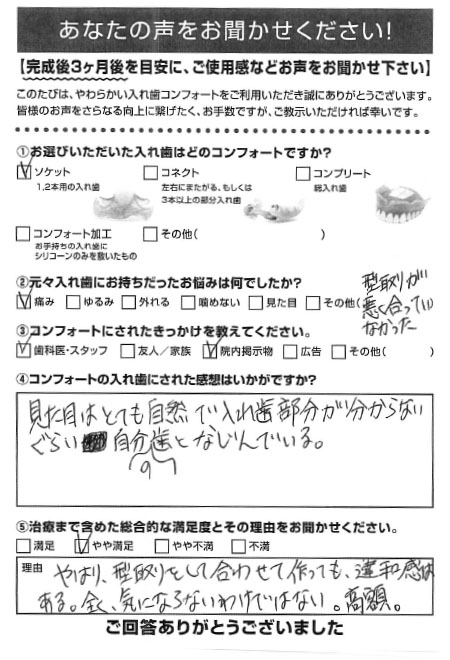 あなたの声をお聞かせください!
【完成後3ヶ月後を目安に、ご使用感などお声をお聞かせ下さい】
このたびは、やわらかい入れ歯コンフォートをご利用いただき誠にありがとうございます。
皆様のお声をさらなる向上に繋げたく、お手数ですが、ご教示いただければ幸いです。
①お選びいただいた入れ歯はどのコンフォートですか?
ソケット
1,2本用の入れ歯
コネクト
左右にまたがる、もしくは
3本以上の部分入れ歯
コンプリート
総入れ歯
コンフォート加工
お手持ちの入れ歯に
シリコーンのみを敷いたもの
その他( )
②元々入れ歯にお持ちだったお悩みは何でしたか?
痛み ゆるみ 外れる 噛めない 見た目 その他(
型取りが
悪く合ってい
なかった
③コンフォートにされたきっかけを教えてください。
歯科医・スタッフ 友人/家族 院内掲示物 広告 その他( )
④コンフォートの入れ歯にされた感想はいかがですか?
見た目はとても自然で入れ歯部分が分からない
ぐらい自分の歯となじんでいる。
⑤治療まで含めた総合的な満足度とその理由をお聞かせください。
満足 やや満足 やや不満 不満
理由 やはり、型取りをして合わせて作っても、違和感は
ある。全く、気にならないわけではない。高額。
ご回答ありがとうございました